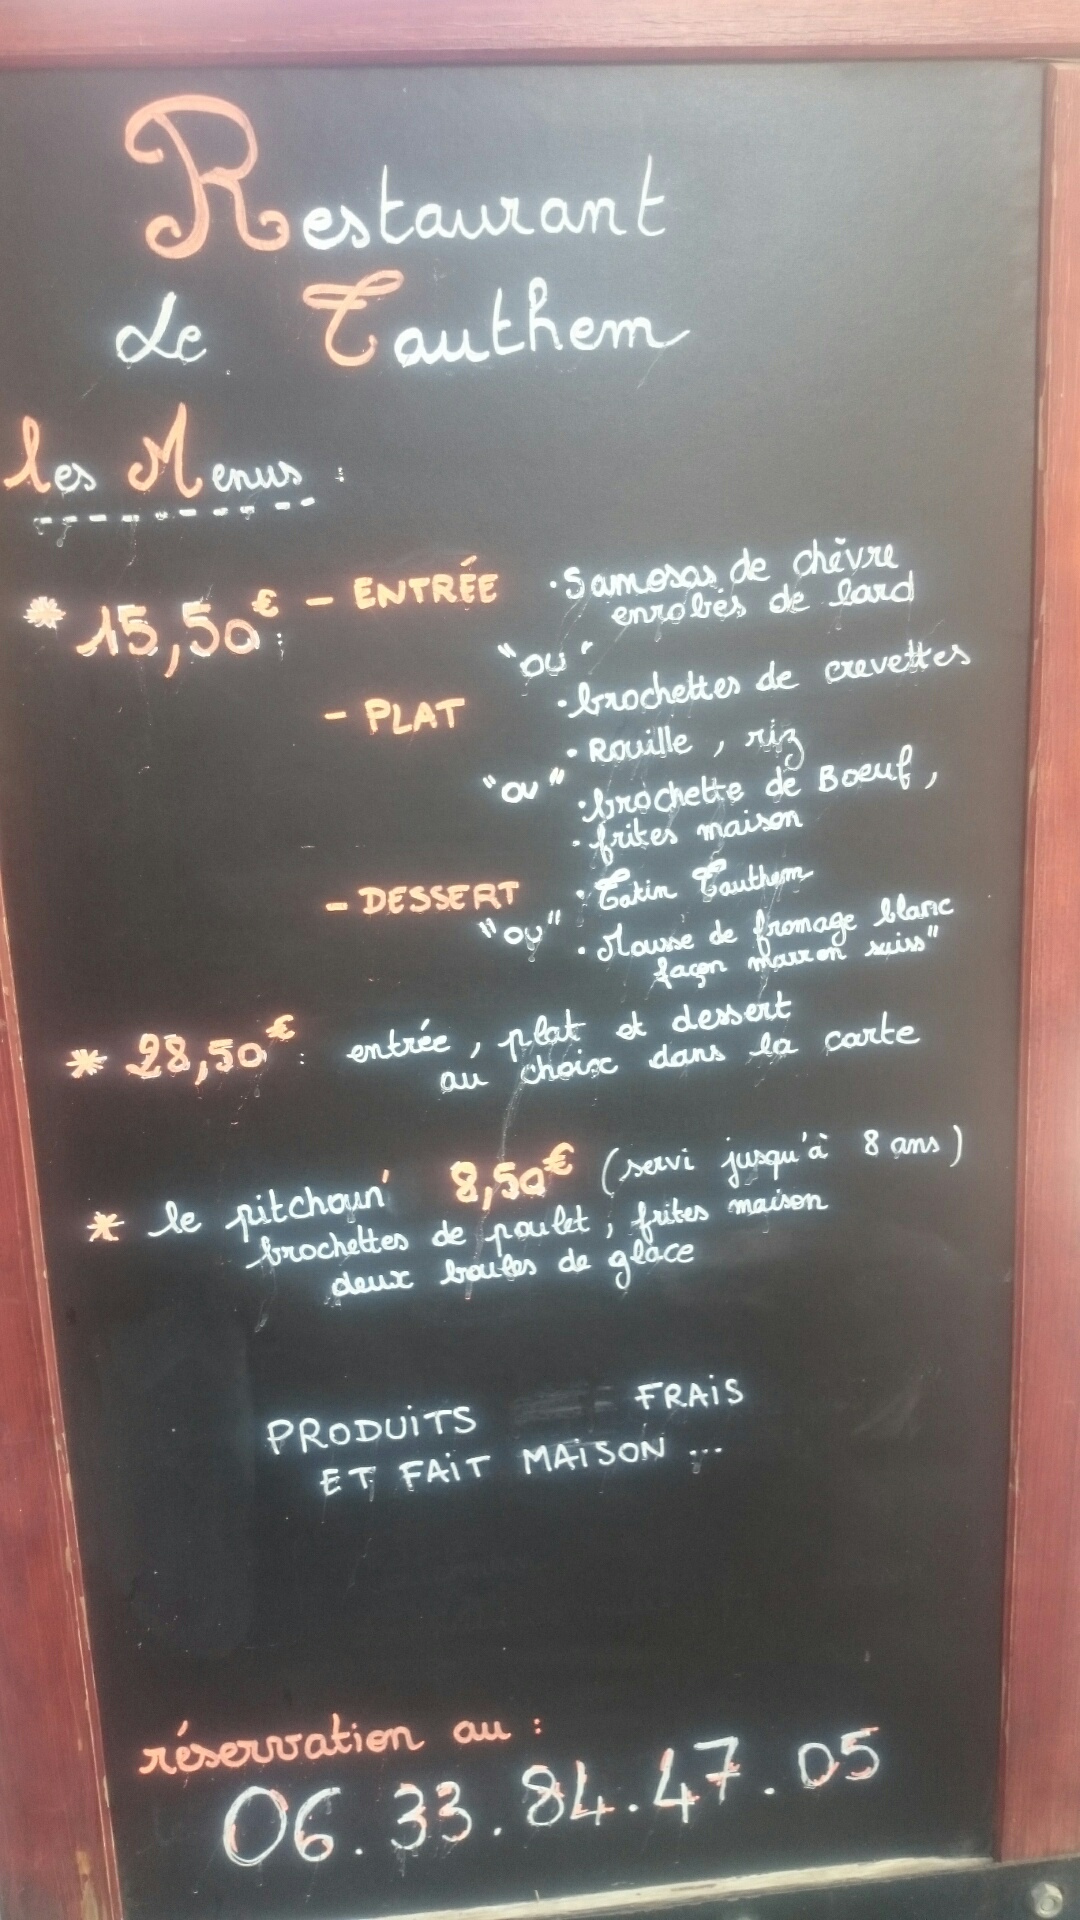 Restaurant
Le Tauthem
les Menus :
* 15,50€ : - ENTRÉE · Samosas de chèvre
enrobés de lard
"ou"
· brochettes de crevettes
- PLAT
· Rouille , riz
"ou"
· brochette de Boeuf ,
· frites maison
- DESSERT · Tatin Tauthem
"ou"
· Mousse de fromage blanc
façon marron suiss"
* 28,50€ : entrée , plat et dessert
au choix dans la carte
* le pitchoun' 8,50€ (servi jusqu'à 8 ans)
brochettes de poulet , frites maison
deux boules de glace
PRODUITS FRAIS
ET FAIT MAISON ...
réservation au :
06.33.84.47.05